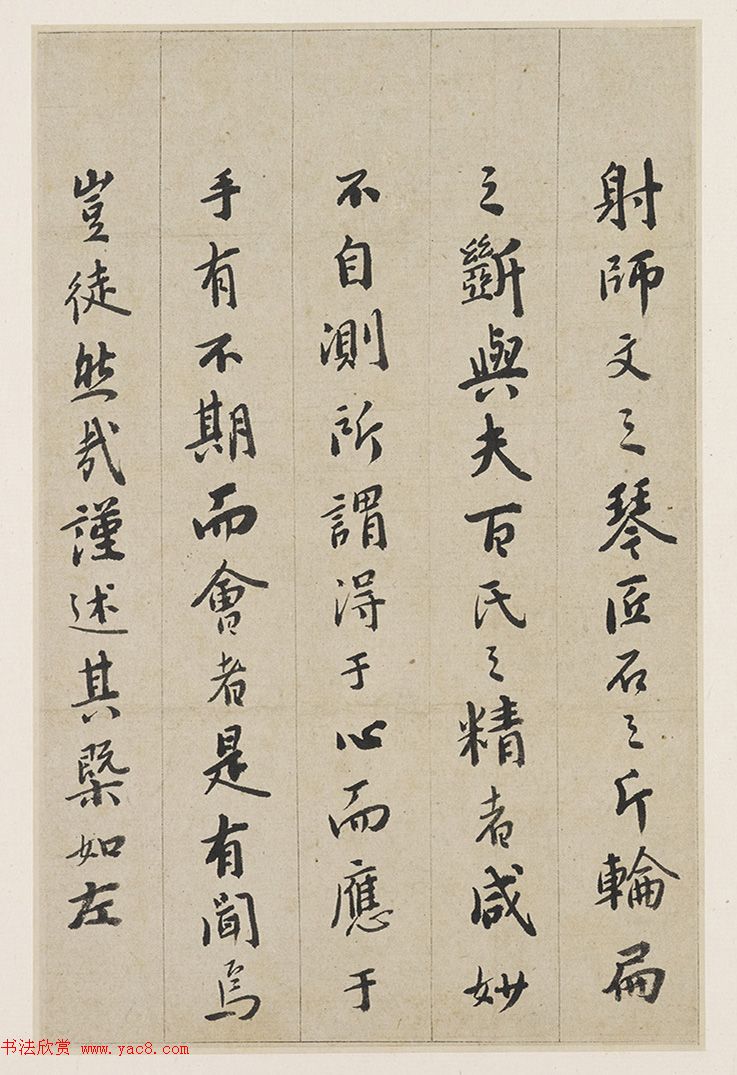 射師文之琴匠石之斤輪扁
之斲與夫百氏之精者咸妙
不自測所謂得于心而應于
手有不期而會者是有聞焉
豈徒然哉謹述其槩如左
书法欣赏 www.yac8.com